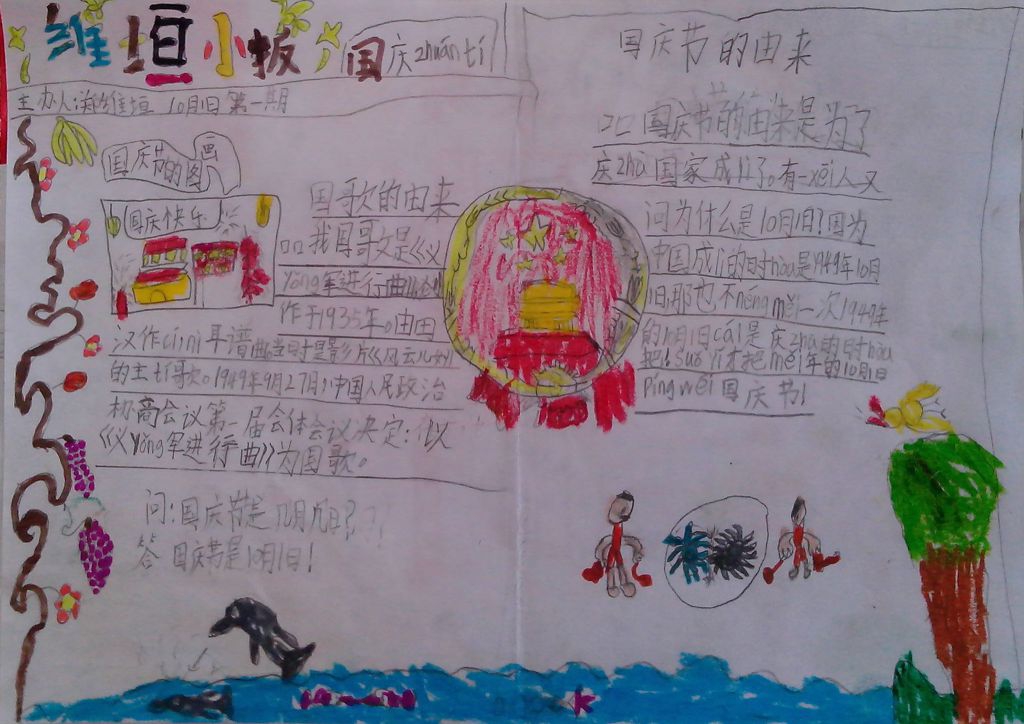 维垣小报
国庆zhuāntí
主办人:郑维垣 10月1日 第一期
国庆节的图画
国庆快乐
国歌的由来
我国哥文是《义
yǒng军进行曲》
作于1935年。由田
汉作cí
曲当时是影片《风云儿
的主tí歌。1949年9月27日,中国人民政治
商会议第一届会体会议决定:以
《义yǒng军进行曲》为国歌。
问:国庆节是几月几日??
答 国庆节是10月1日!
国庆节的由来
国庆节的由来是为了
庆zhù国家成lì了。有一xēi人又
问为什么是10月1日?因为
中国成lì的时hou是1949年10月
1日,那也不néng měi一次1949年
的10月1日cái是庆zhù的时hou
把!suǒ yǐ才把měi年的10月1日
Píng wéi国庆节!